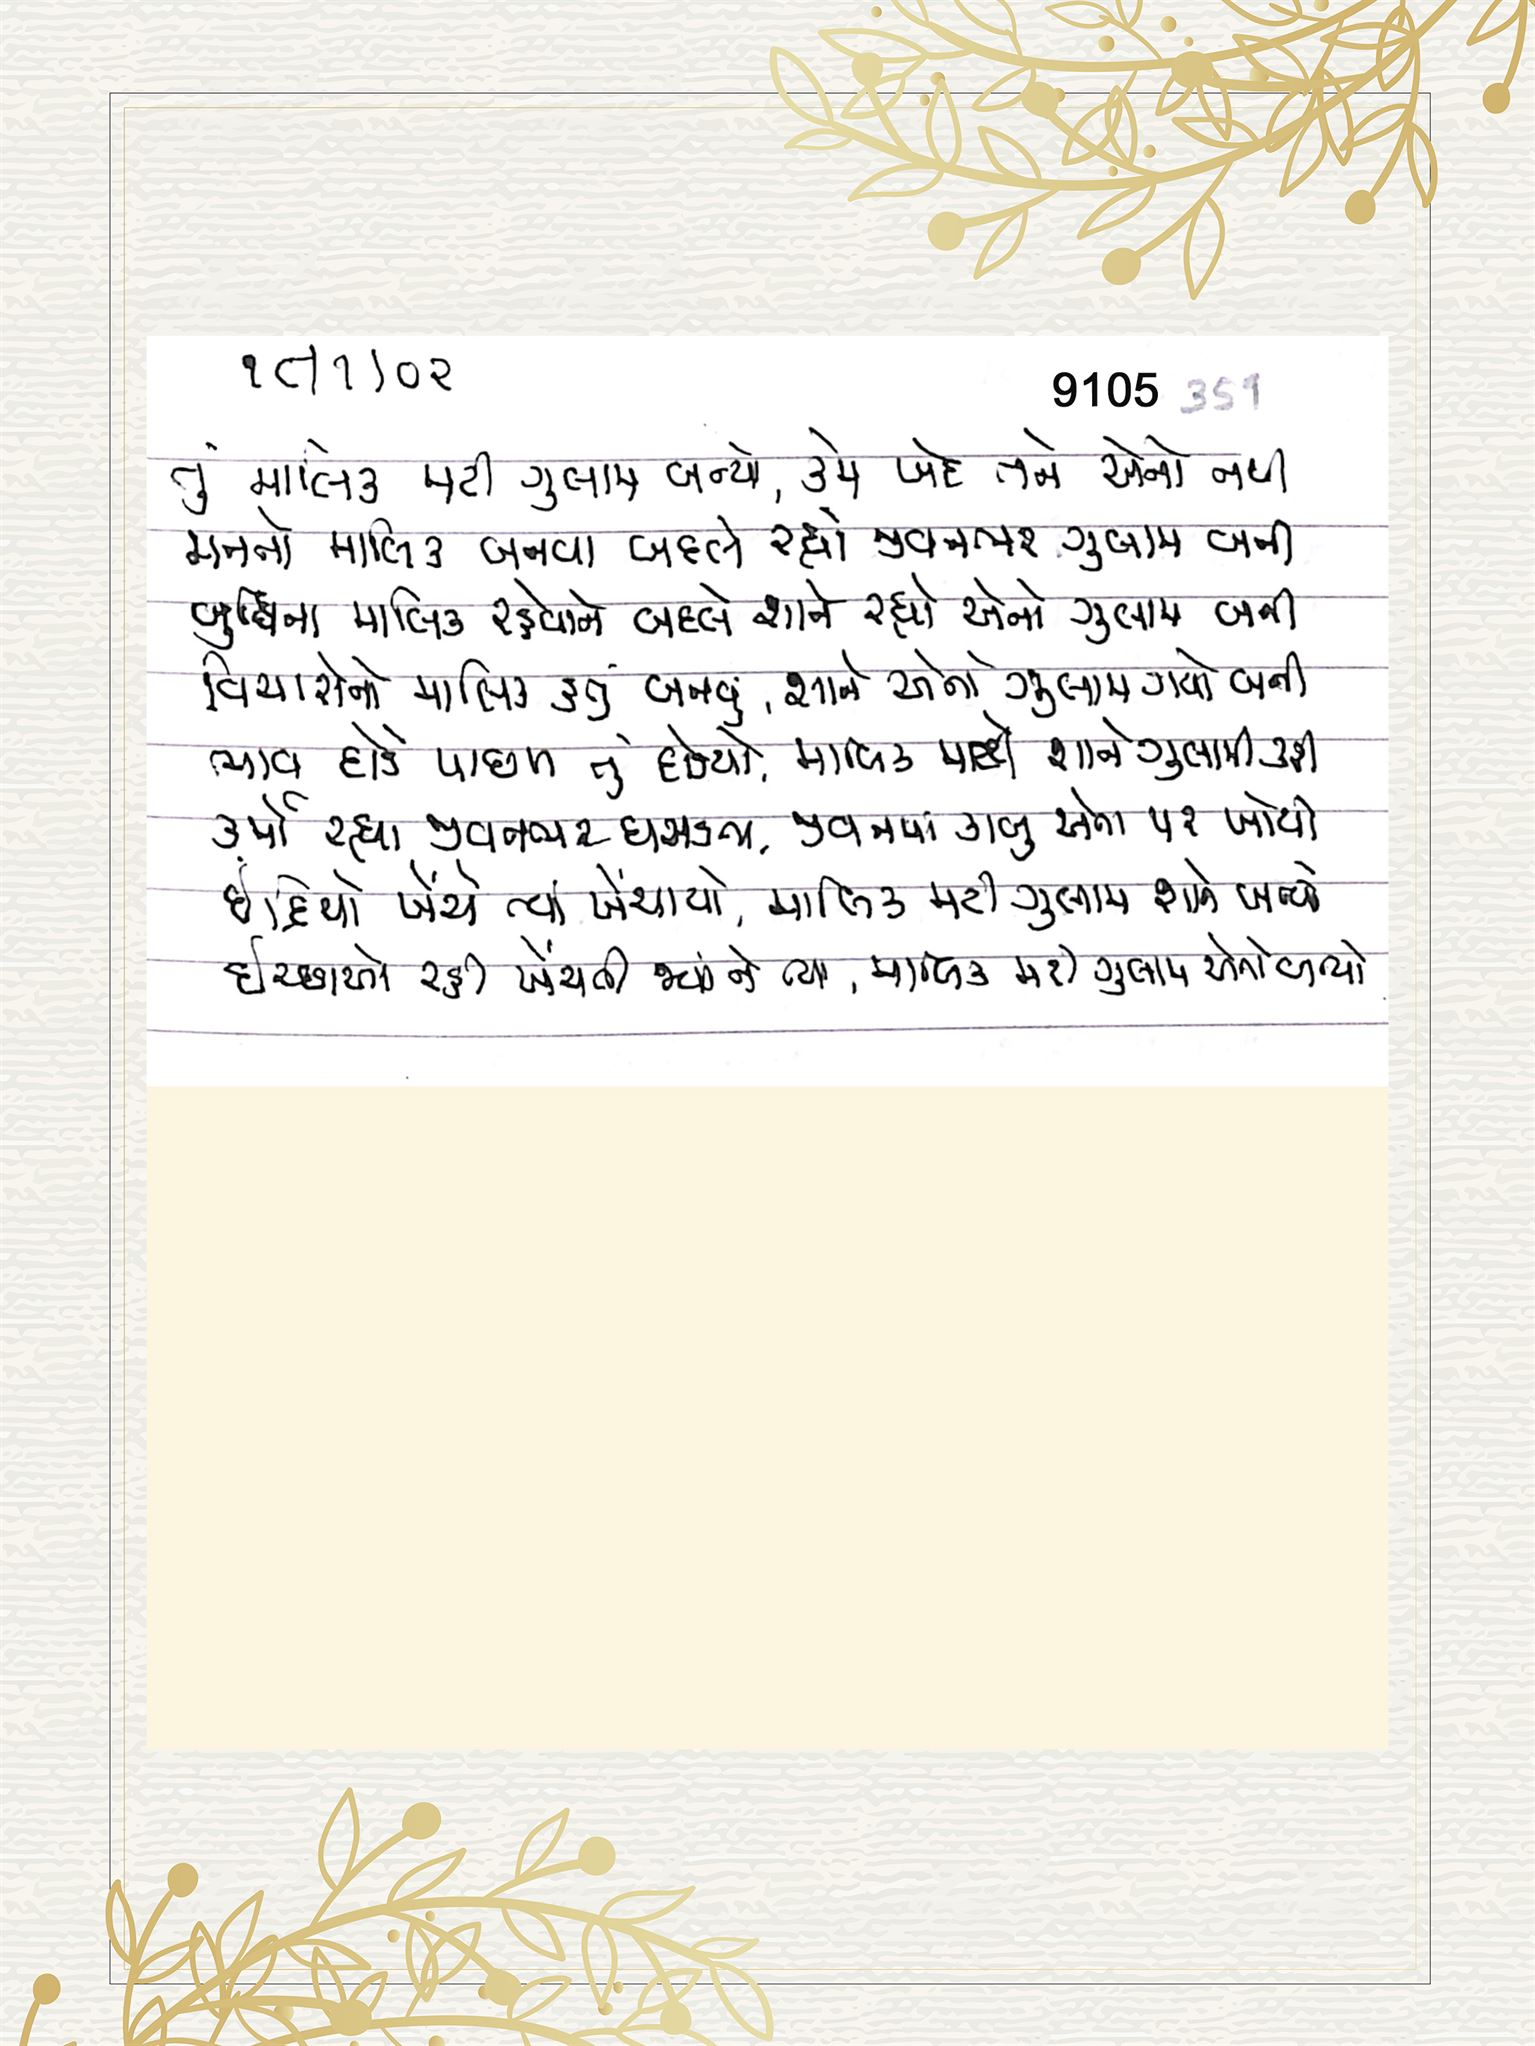 ૧૮/૧/૦૨
9105 351
તું માલિક મટી ગુલામ બન્યો, કેમ ખેદ તને એનો નથી
મનનો માલિક બનવા બદલે રહ્યો જીવનભર ગુલામ બની
બુદ્ધિના માલિક રહેવાને બદલે શાને રહ્યો એનો ગુલામ બની
વિચારોનો માલિક હતું બનવું, શાને એનો ગુલામ ગયો બની
ભાવ દોડે પાછળ તું દોડયો, માલિક મટી શાને ગુલામી કરી
કર્મો રહ્યા જીવનભર ઘસડતા, જીવનમાં કાબુ એના પર ખોયી
ઇંદ્રિયો ખેંચે ત્યાં ખેંચાયો, માલિક મટી ગુલામ શાને બન્યો
ઇચ્છાઓ રહી ખેંચતી જ્યાં ને ત્યાં, માલિક મટી ગુલામ એનો બન્યો